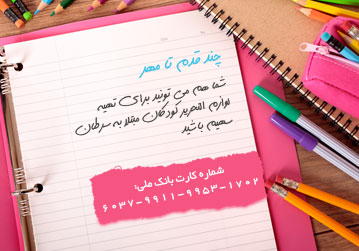 چند قدم تا مهر
شما هم می تونید برای تهیه
لوازم التحریر کودکان مبتلا به سرطان
سهیم باشید
شماره کارت بانک ملی:
۶۰۳۷-۹۹۱۱-۹۹۵۳-۱۷۰۲